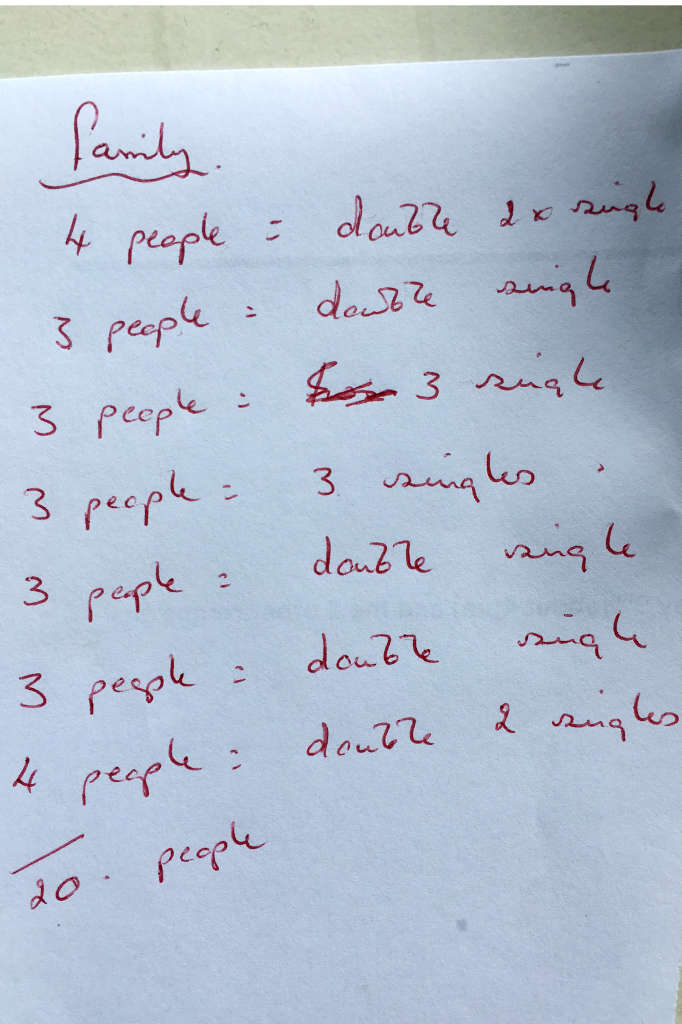 Family.
4 people = double 2 x single
3 people = double single
3 people = 3 single
3 people = 3 singles.
3 people = double single
3 people = double single
4 people = double 2 singles
20. people